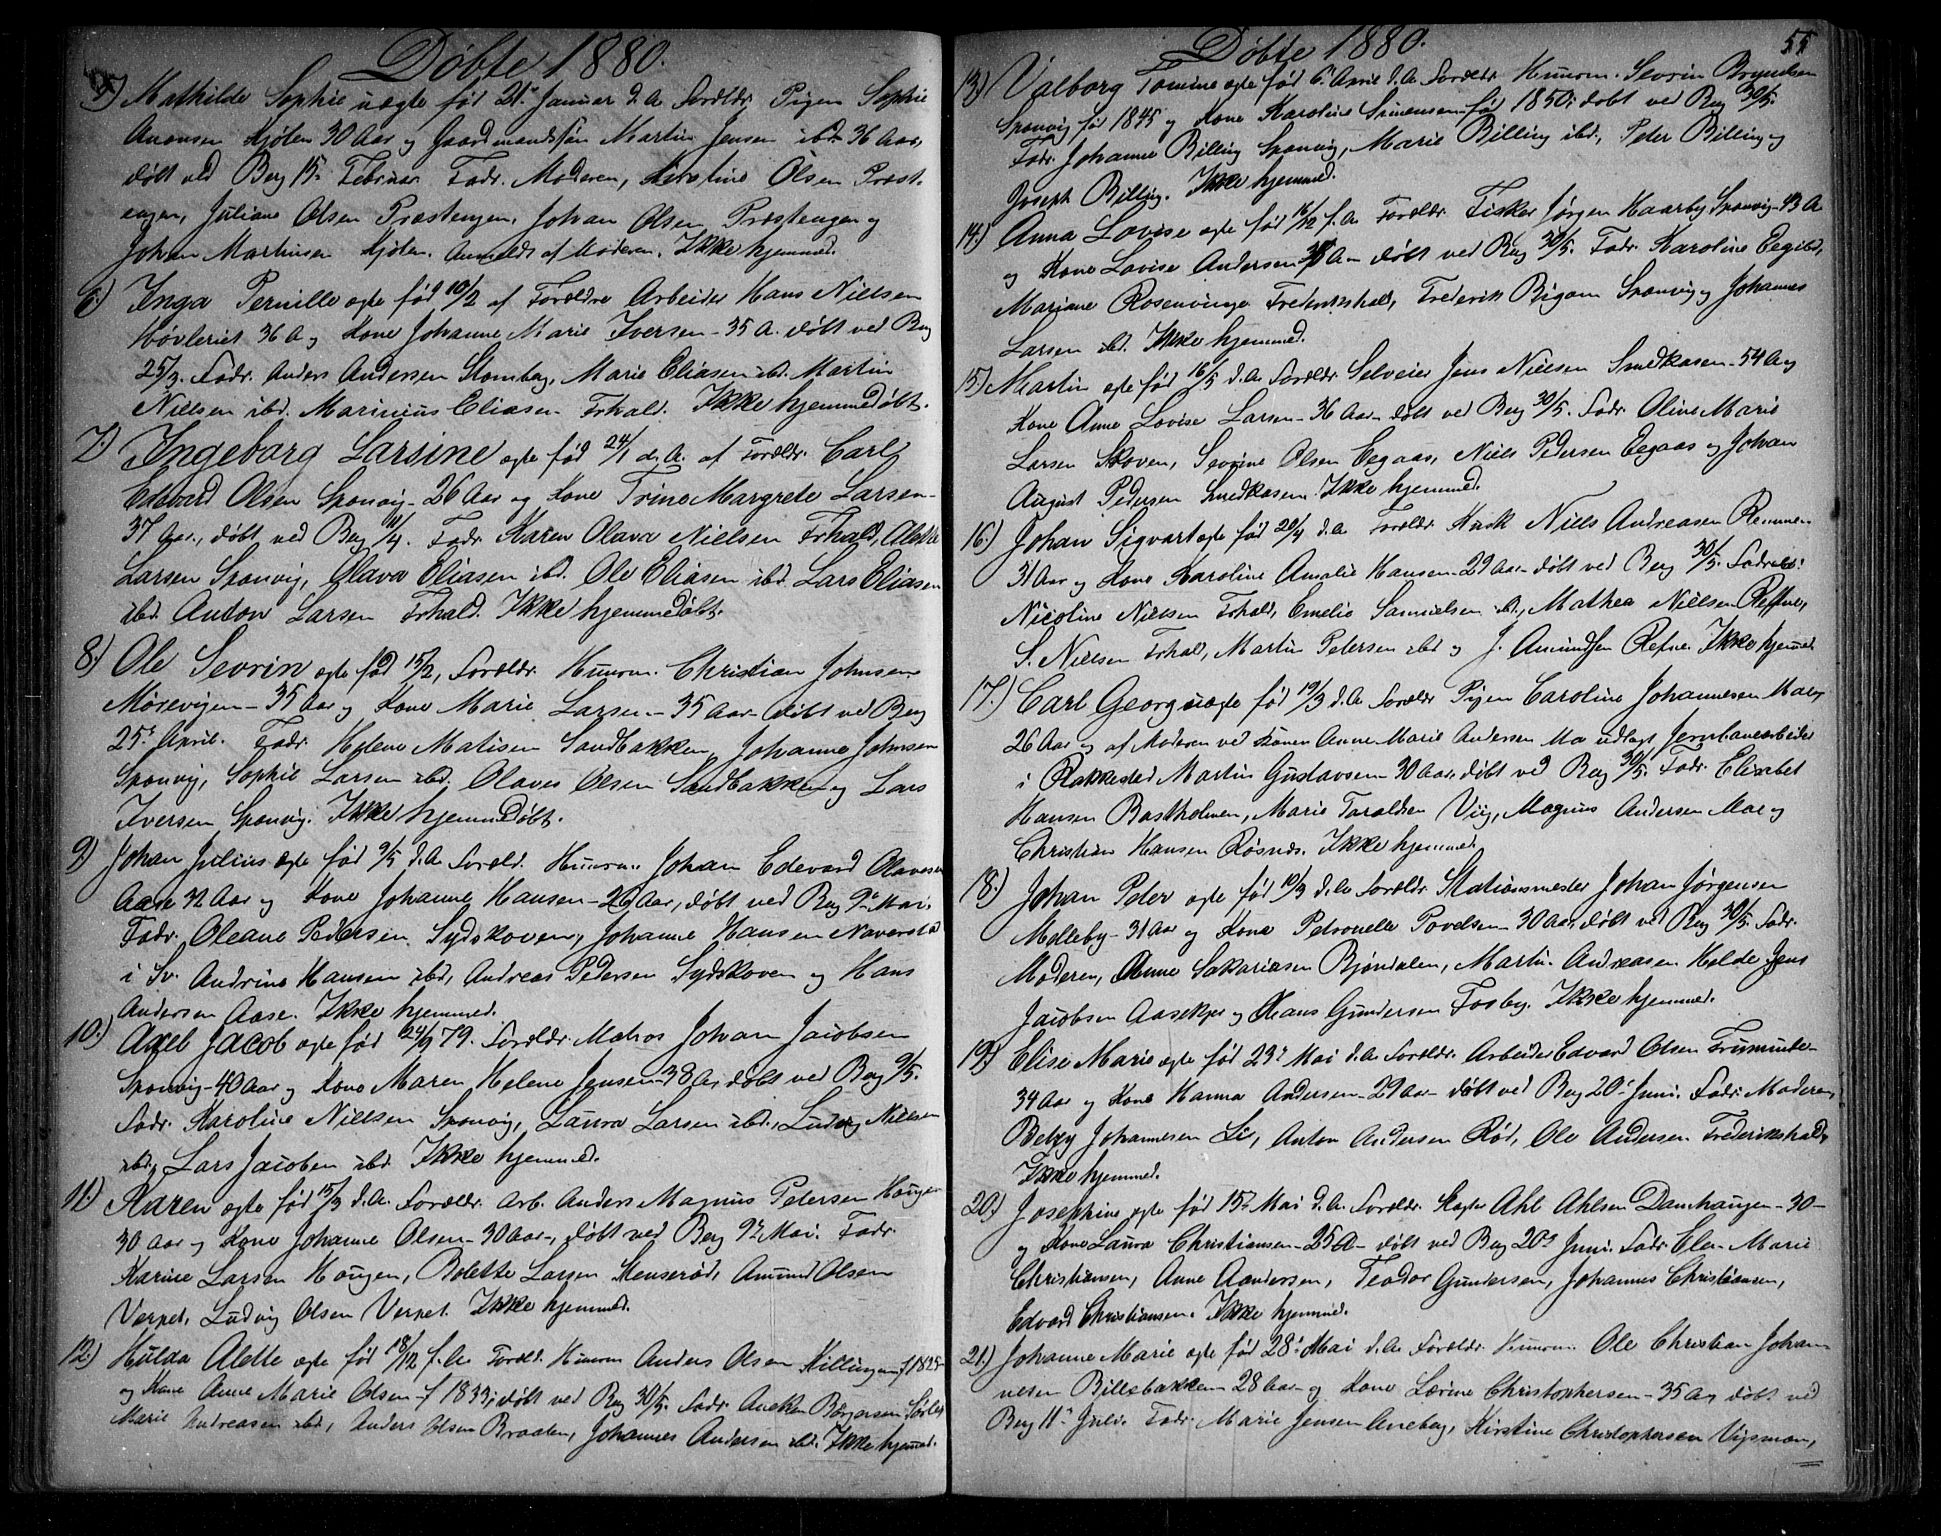 Døbte 1880.
5.) Mathilde Sophie uægte født 21de Januar d.A. Foreldr. Pigen Sophie
Kjølen 30 Aar og Gaardmandssøn Martin Jensen ibd. 36 Aar,
døbt ved Berg 15de Februar. Fadr. Moderen, Kirstine Olsen Præst-
engen, Juliane Olsen Præstengen, Johan Olsen Præstengen og
Johan Martinsen Kjølen. Anmeldt af Moderen. Ikke hjemmed.
6.) Inga Pernille ægte fød 10/2 af Foreldre Arbeider Hans Nielsen
Høvleriet 36 A og Kone Johanne Marie Iversen - 35 A. døbt ved Berg
25/3. Fadr. Anders Andersen Stomberg, Marie Eliasen ibd. Martin
Nielsen ibd. Marinius Eliasen Frhald. Ikke hjemmedøbt.
7.) Ingeborg Larsine ægte fød 24/1 d.A. af Foreldr. Carl
Edvard Olsen Sponvig - 26 Aar og Kone Trine Margrete Larsen -
37 Aar, døbt ved Berg 11/4. Fadr. Karen Olava Nielsen Frhald, Alette
Larsen Sponvig, Olava Eliasen ibd. Ole Eliasen ibd. Lars Eliasen
ibd. Anton Larsen Frhald. Ikke hjemmedøbt.
8.) Ole Sevrin ægte fød 15/2, Foreldr. Huusm. Christian Johnsen
Mørevigen - 35 Aar og Kone Marie Larsen - 35 Aar døbt ved Berg
25de April. Fadr. Helene Matisen Sandbakken, Johanne Johnsen
Sponvig, Sophie Larsen ibd. Olaves Olsen Sandbakken og Lars
Iversen Sponvig. Ikke hjemmedøbt.
9.) Johan Julius ægte fød 9/5 d.A. Foreld. Huusm. Johan Edevard Olavesen
Aase 32 Aar og Kone Johanne Hansen - 26 Aar, døbt ved Berg 9de Mai.
Fadr. Oleane Pedersen Sydskoven, Johanne Hansen Naverstad
i Sv. Andrine Hansen ibd, Andreas Pedersen Sydskoven og Hans
Andersen Aase. Ikke hjemmed.
10.) Axel Jacob ægte fød 24/9 79. Foreldr. Matros Johan Jacobsen
Sponvig - 40 Aar og Kone Maren Helene Jensen - 38 A, døbt ved Berg 9/5.
Fadr. Karoline Nielsen Sponvig, Laura Larsen ibd., Ludvig Nielsen
ibd, Lars Jacobsen ibd. Ikke hjemmed.
11.) Karen ægte fød 15/3 d.A. Foreldr. Arb. Anders Magnus Petersen Hougen
30 Aar og Kone Johanne Olsen - 30 Aar, døbt ved Berg 9de Mai. Fadr.
Karine Larsen Hougen, Bolette Larsen Stenserød, Amund Olsen
Verpet, Ludvig Olsen Verpet. Ikke hjemmed.
12.) Hulda Alette ægte fød 18/12 f.A. Foreld. Huusm. Anders Olsen Killingen f 1825
og Kone Anne Marie Olsen - f 1833, døbt ved Berg 30/5. Fadr. Aneken Børgersen
Marie Andreasen ibd, Anders Olsen Braaten, Johannes Andersen ibd. Ikke hjemmed.
Døbte 1880.
55
13.) Valborg Tomine ægte fød 6te April d.A. Foreldr. Huusm. Sevrin Bryndsen
Sponvig fød 1845 og Kone Karoline Simensen fød 1850, døbt ved Berg 30/5.
Fadr. Johanne Billing Sponvig, Marie Billing ibd., Peter Billing og
Joseph Billing. Ikke hjemmed.
14.) Anna Lovise ægte fød 16/12 f.A. Foreldr. Fisker Jørgen Haarby Sponvig - 43 A
og Kone Lovise Andersen A - døbt ved Berg 30/5. Fadr. Karoline
Mariane Rosenvinge Frederikshald, Frederik Sponvig og Johannes
Larsen ibd. Ikke hjemmed.
15.) Martin ægte fød 16/5 d.A. Foreldr. Selveier Jens Nielsen Smedkasen - 54 A og
Kone Anne Lovise Larsen - 36 Aar døbt ved Berg 30/5. Fadr. Oline Marie
Larsen Skoven, Sevrine Olsen Eegaas, Niels Pedersen Eegaas og Johan
August Pedersen Smedkasen. Ikke hjemmed.
16.) Johan Sigvart ægte fød 20/4 d.A. Foreldr. Kusk Niels Andreasen Remmen
31 Aar og Kone Karoline Amalie Hansen - 29 Aar døbt ved Berg 30/5. Faddere:
Nicoline Nielsen Frhald, Emelie Samuelsen ibd., Mathea Nielsen Reffne,
S. Nielsen Frhald, Martin Petersen ibd og J. Amundsen Refne. Ikke hjemmed.
17.) Carl Georg uægte fød 19/3 d.A. Foreldr. Pigen Caroline Johannesen Mae
26 Aar og af Moderen ved Konen Anne Marie Andersen Ma udlagt Jernbanearbeider
i Rakkestad Martin Gustavsen - 30 Aar, døbt ved Berg 30/5. Fadr. Elisabet
Hansen Bastholmen, Marie Taraldsen Viig, Magnus Andersen Mae og
Christian Hansen Røsnæs. Ikke hjemmed.
18.) Johan Peter ægte fød 10/3 d.A. Foreldr. Stationsmester Johan Jørgensen
Melleby - 31 Aar og Kone Petronelle Povelsen - 30 Aar, døbt ved Berg 30/5. Fadr.
Moderen, Anne Sakariasen Bjøndalen, Martin Andreasen Helde, Jens
Jacobsen og Hans Gundersen Fosby. Ikke hjemmed.
19.) Elise Marie ægte fød 23de Mai d.A. Foreldr. Arbeider Edvard Olsen
34 Aar og Kone Hanna Andersen - 29 Aar - døbt ved Berg 20de Juni. Fadr. Moderen,
Betzy Johannesen Li, Anton Andersen Rød, Ole Andersen Frederikshald.
Ikke hjemmed.
20.) Josephine ægte fød 15de Mai d.A. Foreldr. Røgter Ahl Ahlsen Damhaugen - 30 -
og Kone Laura Christiansen - 25 A - døbt ved Berg 20de Juni. Fadr. Elen Marie
Christiansen, Anne Aandersen, Teodor Gundersen, Johannes Christiansen,
Edvard Christiansen. Ikke hjemmed.
21.) Johanne Marie ægte fød 28de Mai d.A. Foreldr. Huusm. Ole Christian Johan-
nesen Billebakken - 28 Aar og Kone Lærine Christophersen - 35 A, døbt ved
Berg 11te Juli. Fadr. Marie Jensen Aneberg, Kirstine Christophersen Vigsmoen,